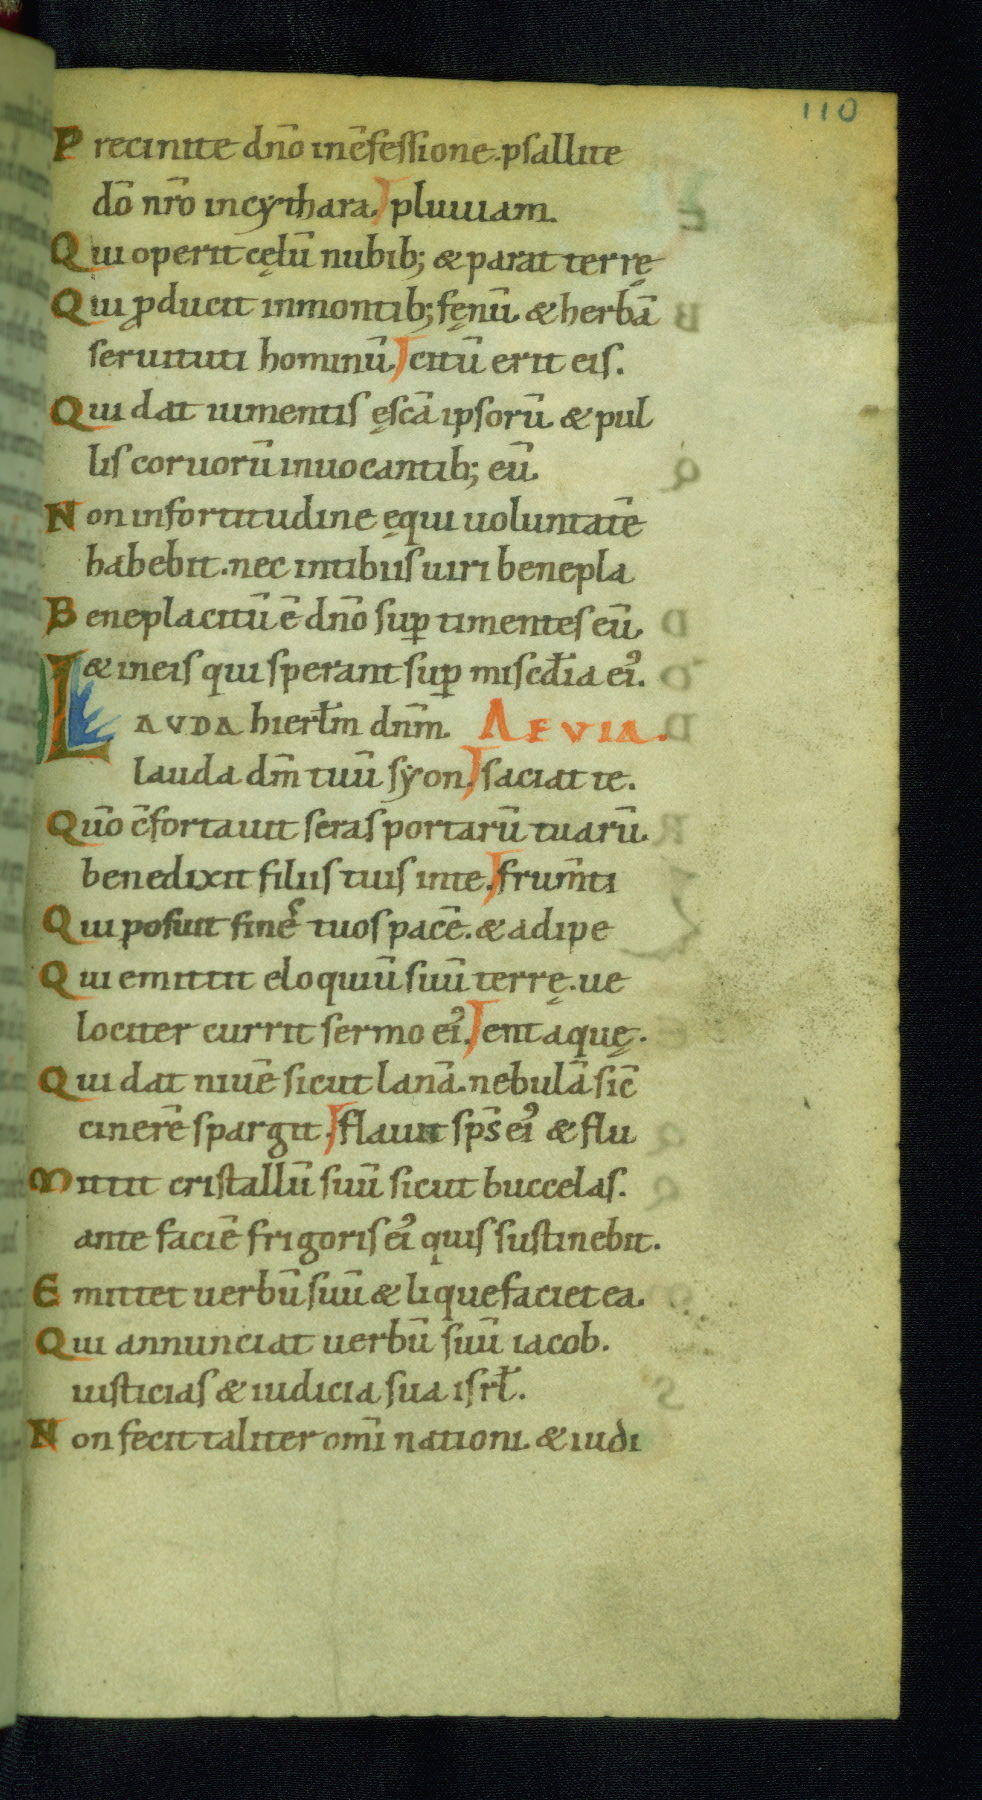 110
Precinite dn̄o in c̄fessione. psallite
dō nr̄o in cythara. pluuiam.
Qui operit cęlū nubib; & parat terrę
Qui ꝓducit in montib; fęnū. & herbā
seruituti hominū. citū erit eis.
Qui dat iumentis ęscā ipsorū. & pul
lis coruorū inuocantib; eū.
Non in fortitudine ęqui uoluntatē
habebit. nec in tibiis uiri benepla
Beneplacitū ē dn̄o suꝑ timentes eū.
& in eis qui sperant suꝑ misc̄dia ei᾽.
LAVDA hierłm dnm̄. AEVIA.
lauda dm̄ tuū syon. saciat te.
Qūo c̄fortauit seras portarū tuarū.
benedixit filiis tuis in te. frum̄ti
Qui posuit fines tuos pacē. & adipe
Qui emittit eloquiū suū terrę. ue
lociter currit sermo ei᾽. ent aquę.
Qui dat niuē sicut lanā. nebulā sic̄
cinerē spargit. flauit sps̄ ei᾽ & flu
Mittit cristallū suū sicut buccelas.
ante faciē frigoris ei᾽ quis sustinebit.
Emittet uerbū suū & liquefaciet ea.
Qui annunciat uerbū suū iacob.
iusticias & iudicia sua isrł.
Non fecit taliter om̄i nationi. & iudi